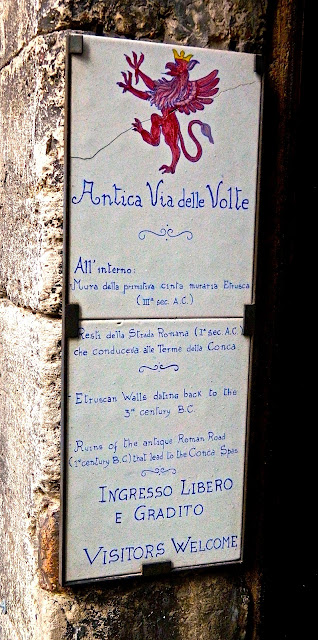 Antica Via delle Volte
All'interno:
Mura della primitiva cinta muraria Etrusca
(IIIª sec. A.C.)
Resti della Strada Romana (Iª sec. A.C.)
che conduceva alle Terme della Conca
Etruscan Walls dating back to the
3rd century B.C.
Ruins of the antique Roman Road
(1st century B.C.) that lead to the Conca Spas
INGRESSO LIBERO
E GRADITO
VISITORS WELCOME